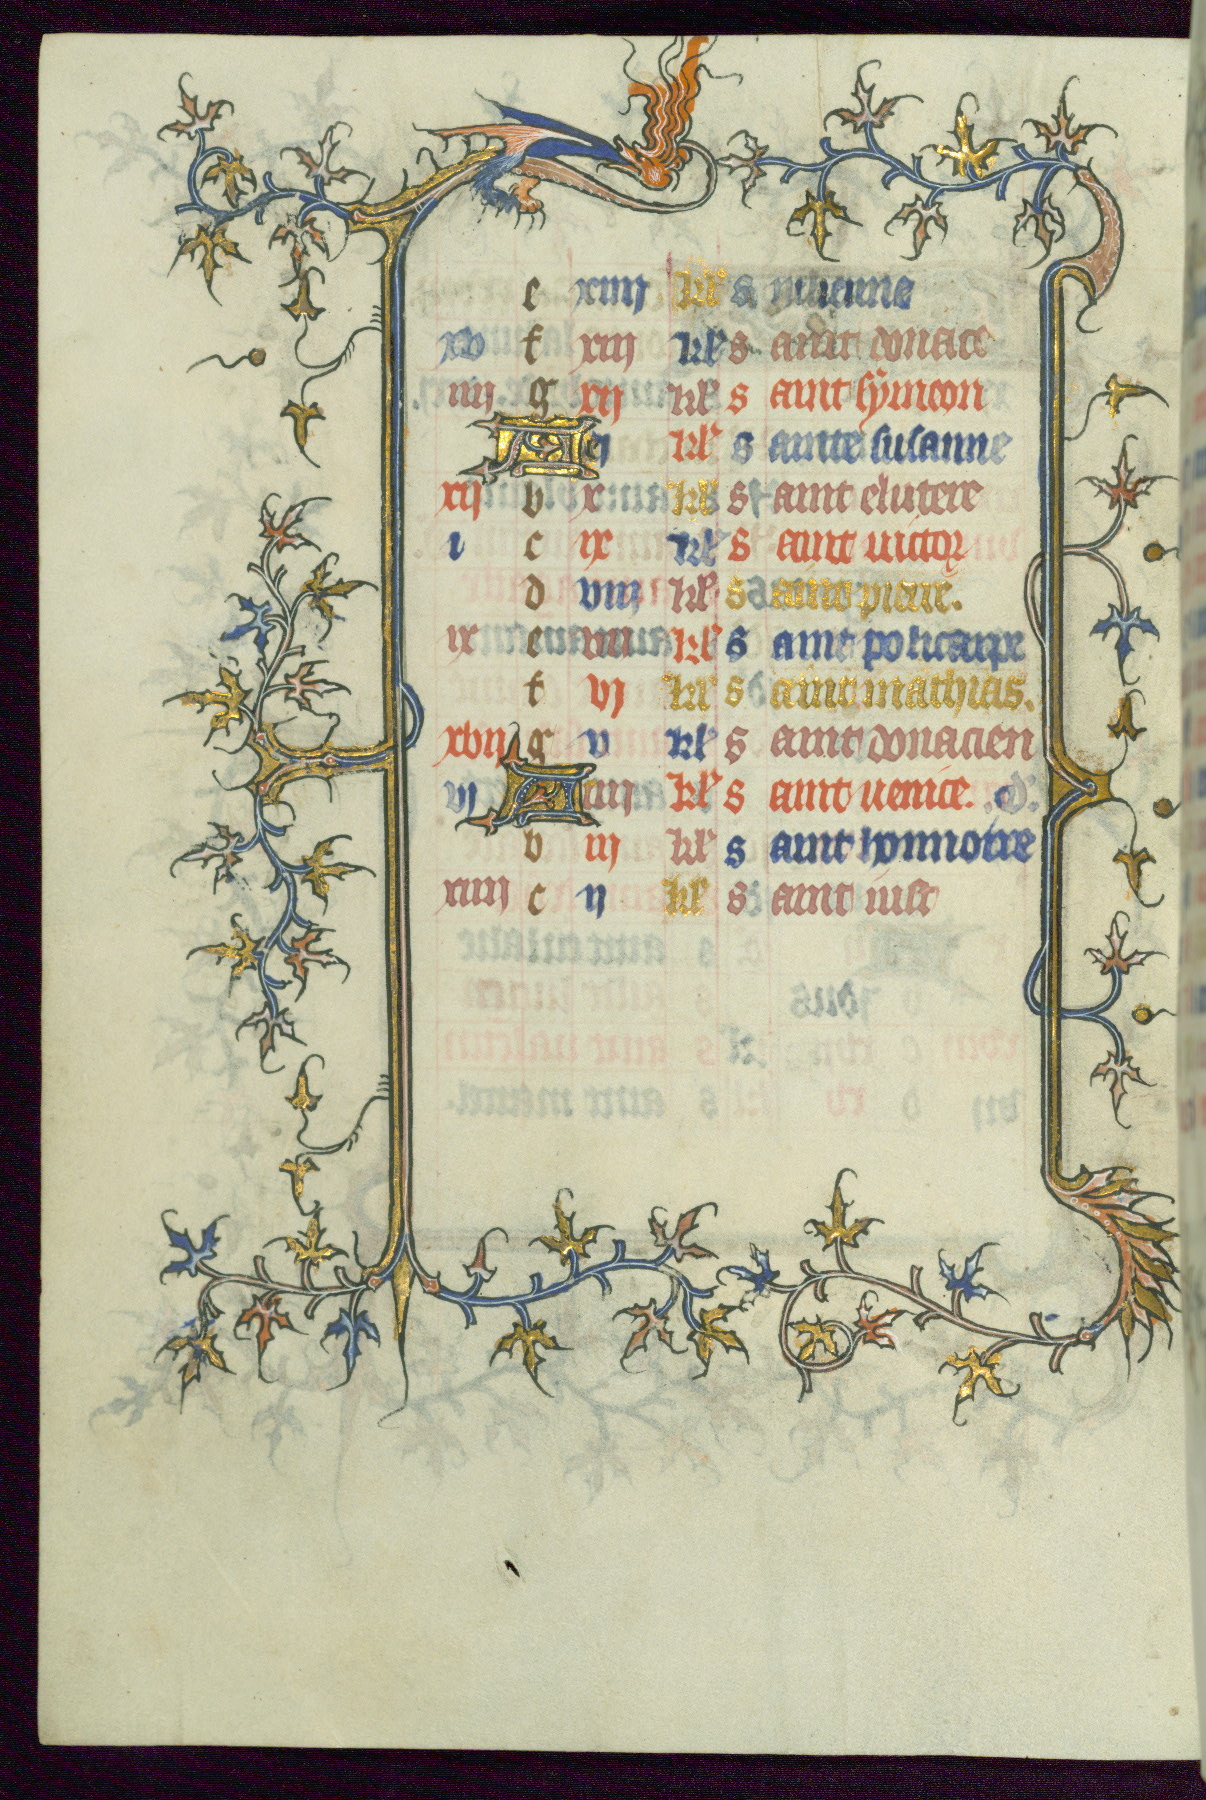 e xiiii kl' s iulienne
xv f xiii kl' s aint donace
iiii g xii kl' s aint symeon
A xi kl' s ainte susanne
xii b x kl' s aint elutere
i c ix kl' s aint victor
d viii kl' s aint piere.
ix e vii kl' s aint policarpe
f vi kl' s aint mathias.
xvii g v kl' s aint donacien
vi A iiii kl' s aint venice. .d.
b iii kl' s aint honnoure
xiiii c ii kl' s aint iust